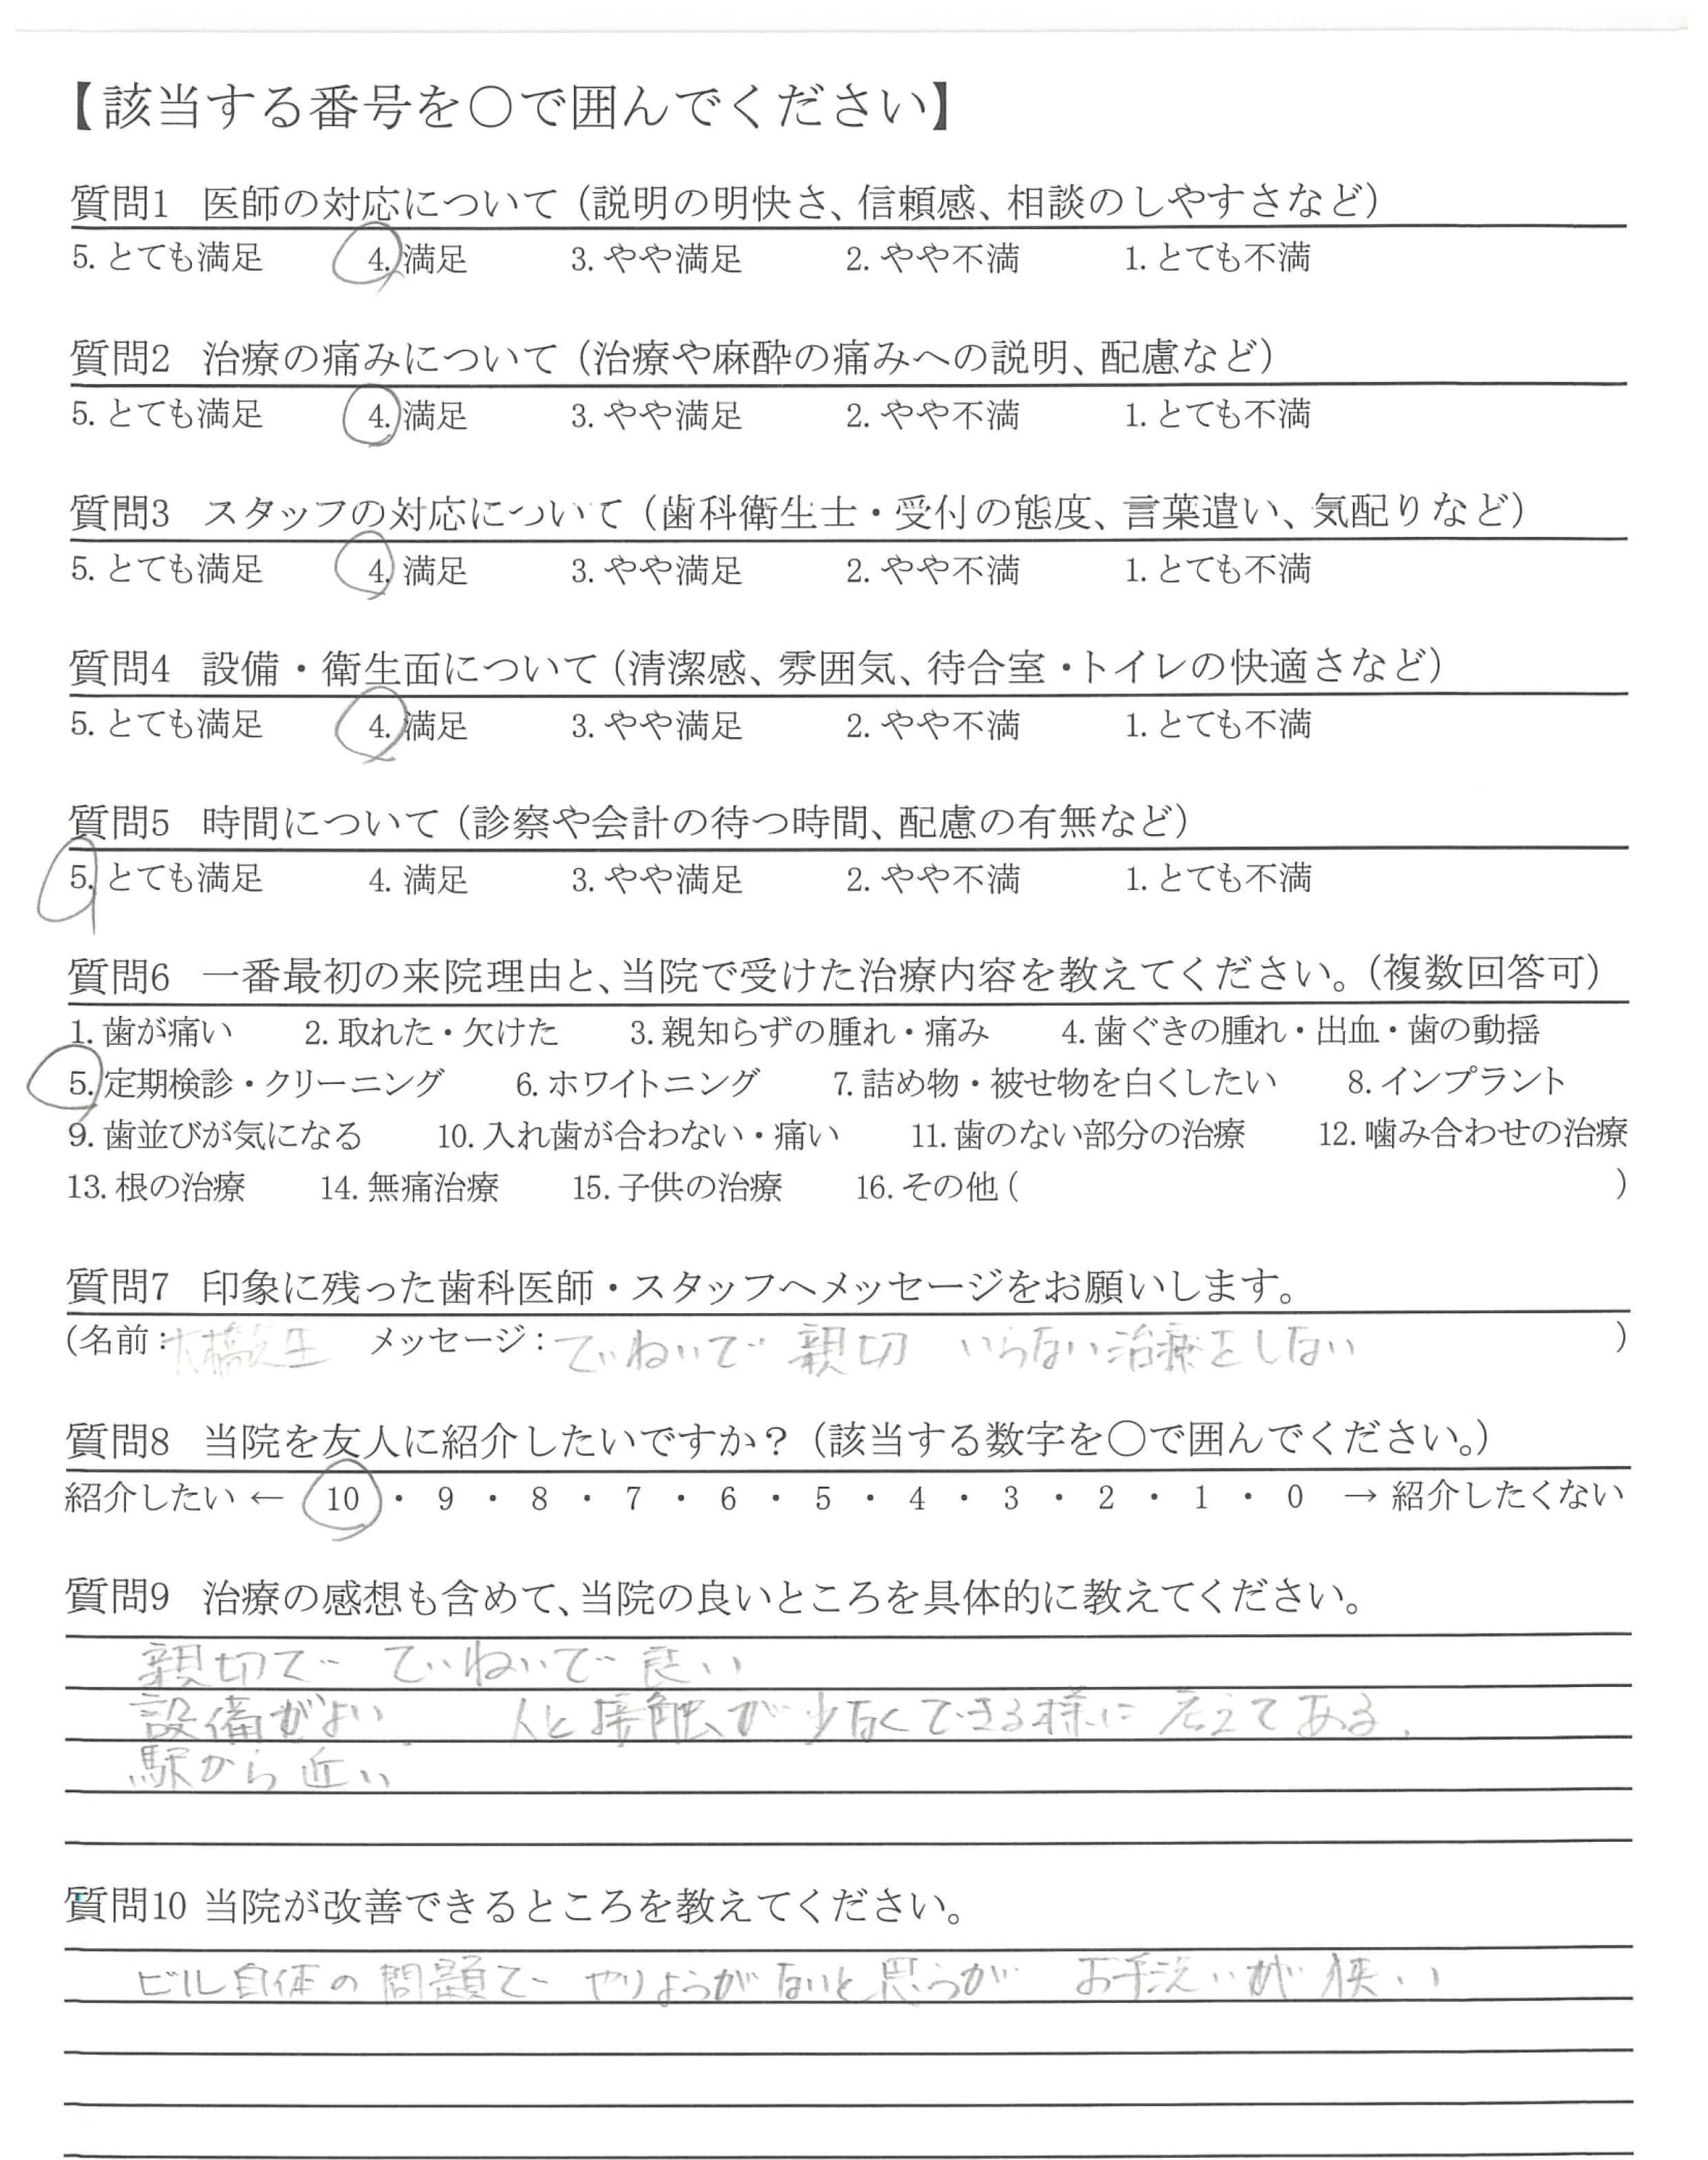 【該当する番号を○で囲んでください】
質問1 医師の対応について（説明の明快さ、信頼感、相談のしやすさなど）
5. とても満足 4. 満足 3. やや満足 2. やや不満 1. とても不満
質問2 治療の痛みについて（治療や麻酔の痛みへの説明、配慮など）
5. とても満足 4. 満足 3. やや満足 2. やや不満 1. とても不満
質問3 スタッフの対応について（歯科衛生士・受付の態度、言葉遣い、気配りなど）
5. とても満足 4. 満足 3. やや満足 2. やや不満 1. とても不満
質問4 設備・衛生面について（清潔感、雰囲気、待合室・トイレの快適さなど）
5. とても満足 4. 満足 3. やや満足 2. やや不満 1. とても不満
質問5 時間について（診察や会計の待つ時間、配慮の有無など）
5. とても満足 4. 満足 3. やや満足 2. やや不満 1. とても不満
質問6 一番最初の来院理由と、当院で受けた治療内容を教えてください。（複数回答可）
1. 歯が痛い 2. 取れた・欠けた 3. 親知らずの腫れ・痛み 4. 歯ぐきの腫れ・出血・歯の動揺
5. 定期検診・クリーニング 6. ホワイトニング 7. 詰め物・被せ物を白くしたい 8. インプラント
9. 歯並びが気になる 10. 入れ歯が合わない・痛い 11. 歯のない部分の治療 12. 噛み合わせの治療
13. 根の治療 14. 無痛治療 15. 子供の治療 16. その他 ( )
質問7 印象に残った歯科医師・スタッフへメッセージをお願いします。
(名前： 生 メッセージ：ていねいで 親切 いらない治療をしない )
質問8 当院を友人に紹介したいですか？（該当する数字を○で囲んでください。）
紹介したい ← 10 ・ 9 ・ 8 ・ 7 ・ 6 ・ 5 ・ 4 ・ 3 ・ 2 ・ 1 ・ 0 → 紹介したくない
質問9 治療の感想も含めて、当院の良いところを具体的に教えてください。
親切で ていねいで 良い
設備がよい 人と接触が少なくできる様に 考えてある.
駅から近い
質問10 当院が改善できるところを教えてください。
ビル自体の問題で やりようがないと思うが お手洗いが 狭い